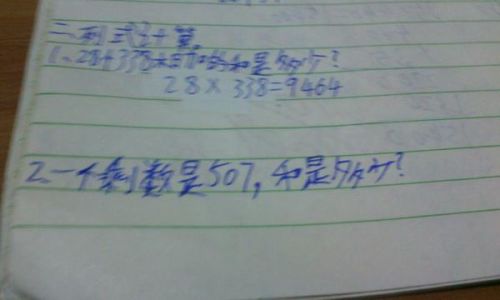 二、列式计算。
1、28和338相加的和是多少？
28×338=9464
2、一个剩数是507，和是多少？